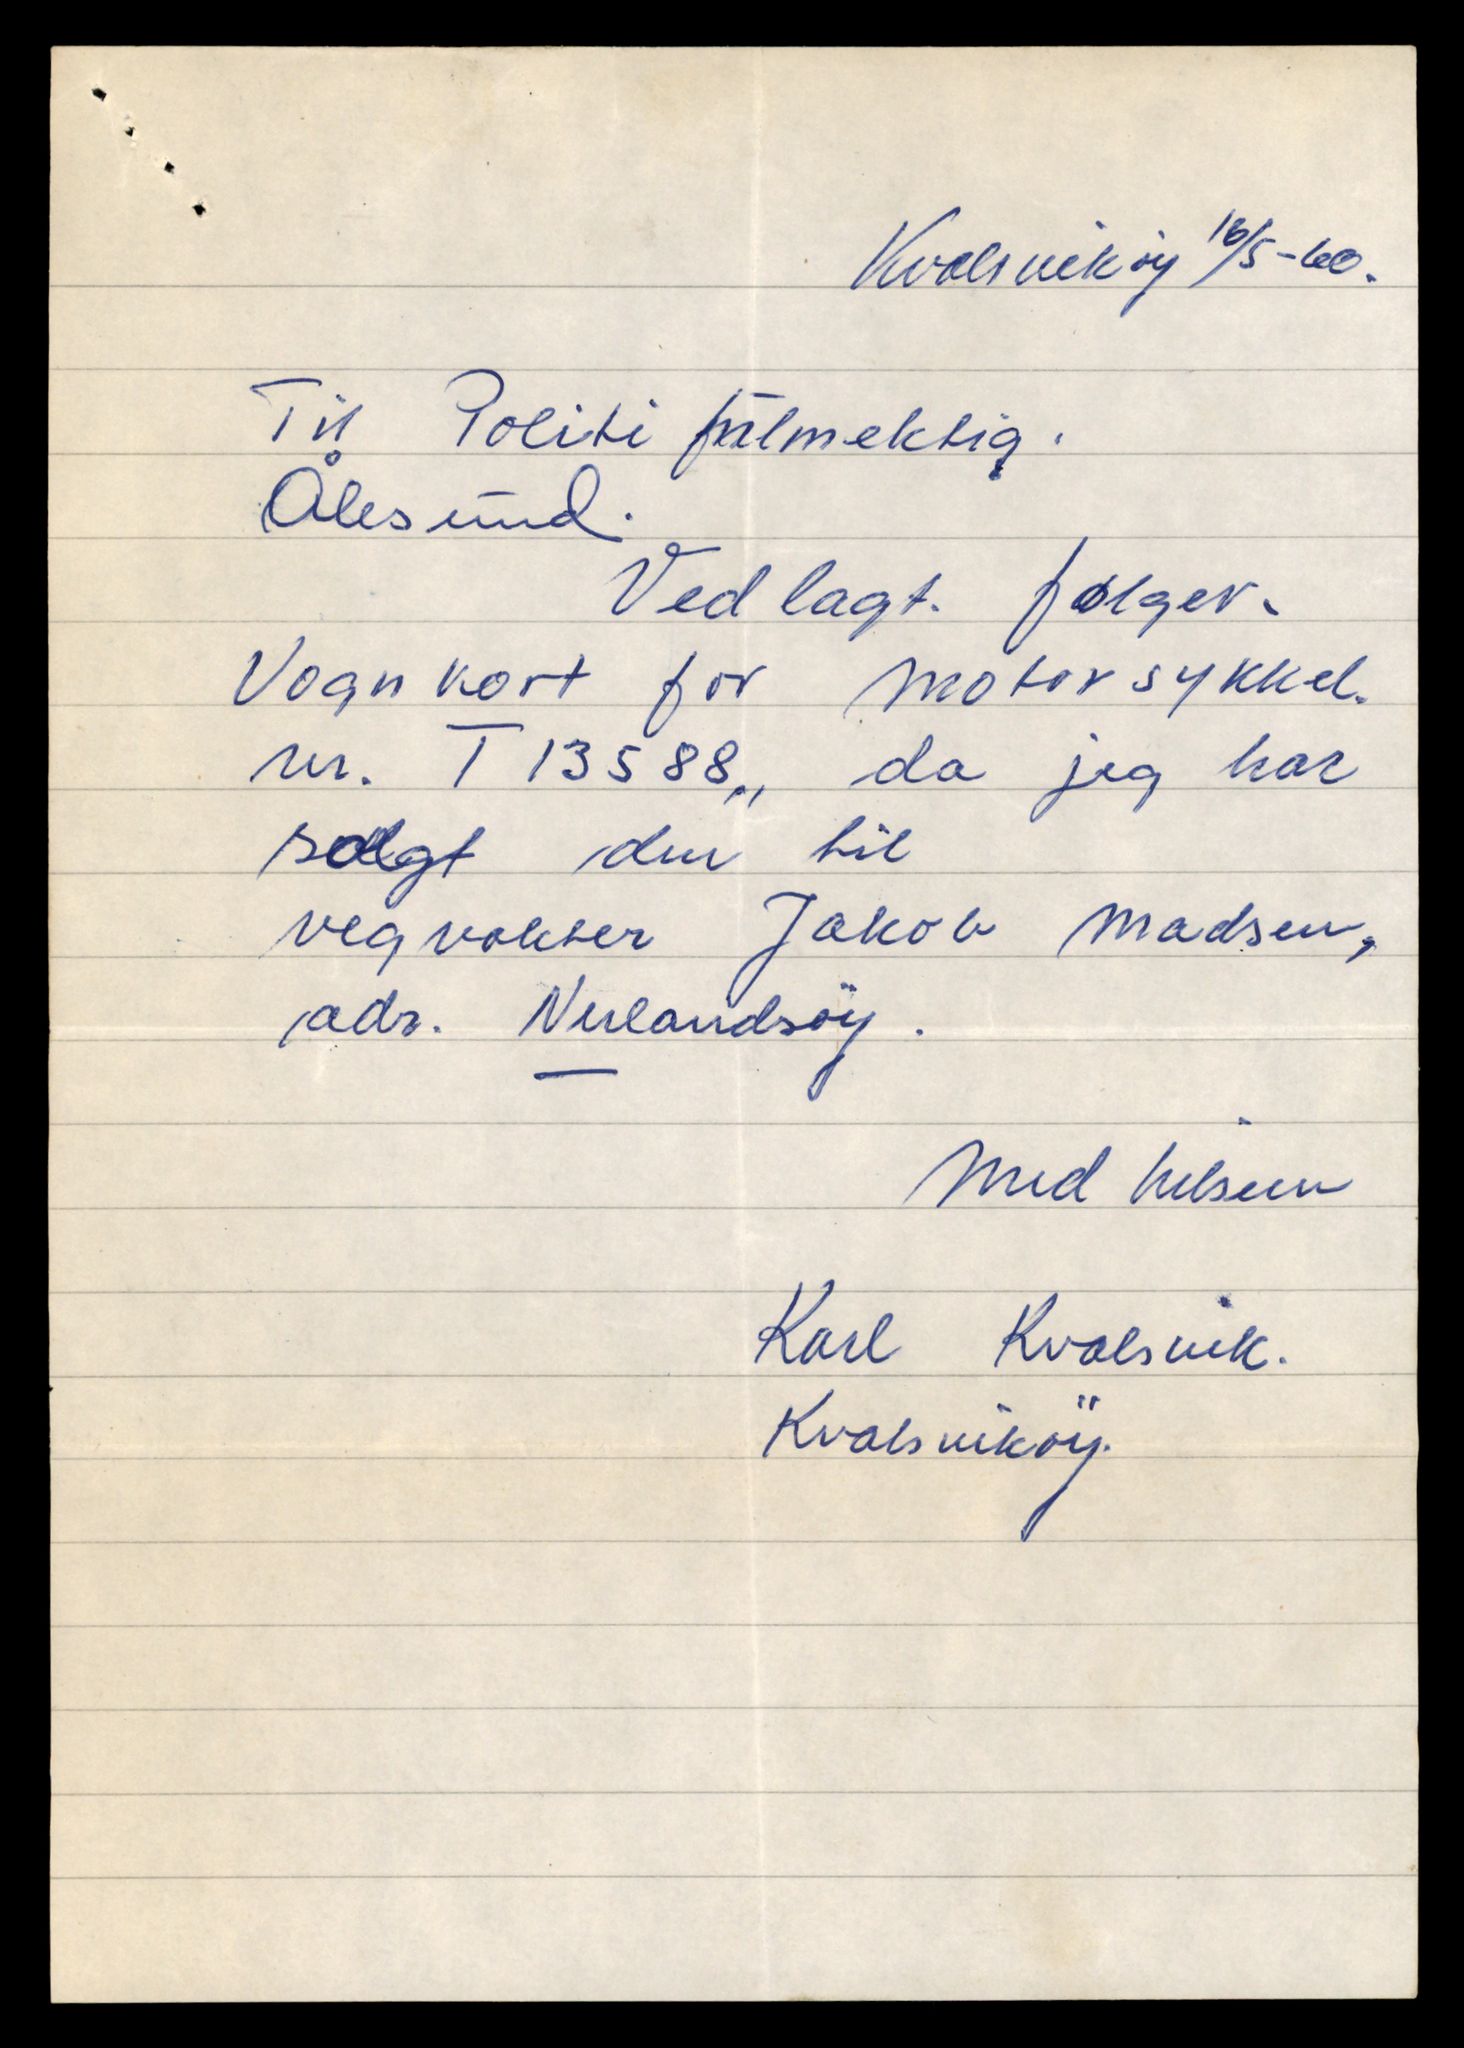 Kvalsvikøy 16/5-60.
Til Politi fülmektig.
Ålesünd.
Vedlagt. følger.
Vognkort for Motorsykkel.
nr. T 13588,, da jeg har
solgt den til
vegvokter Jakob Madsen,
adr. Nerlandsöy.
Med hilsen
Karl Kvalsvik.
Kvalsviköy.